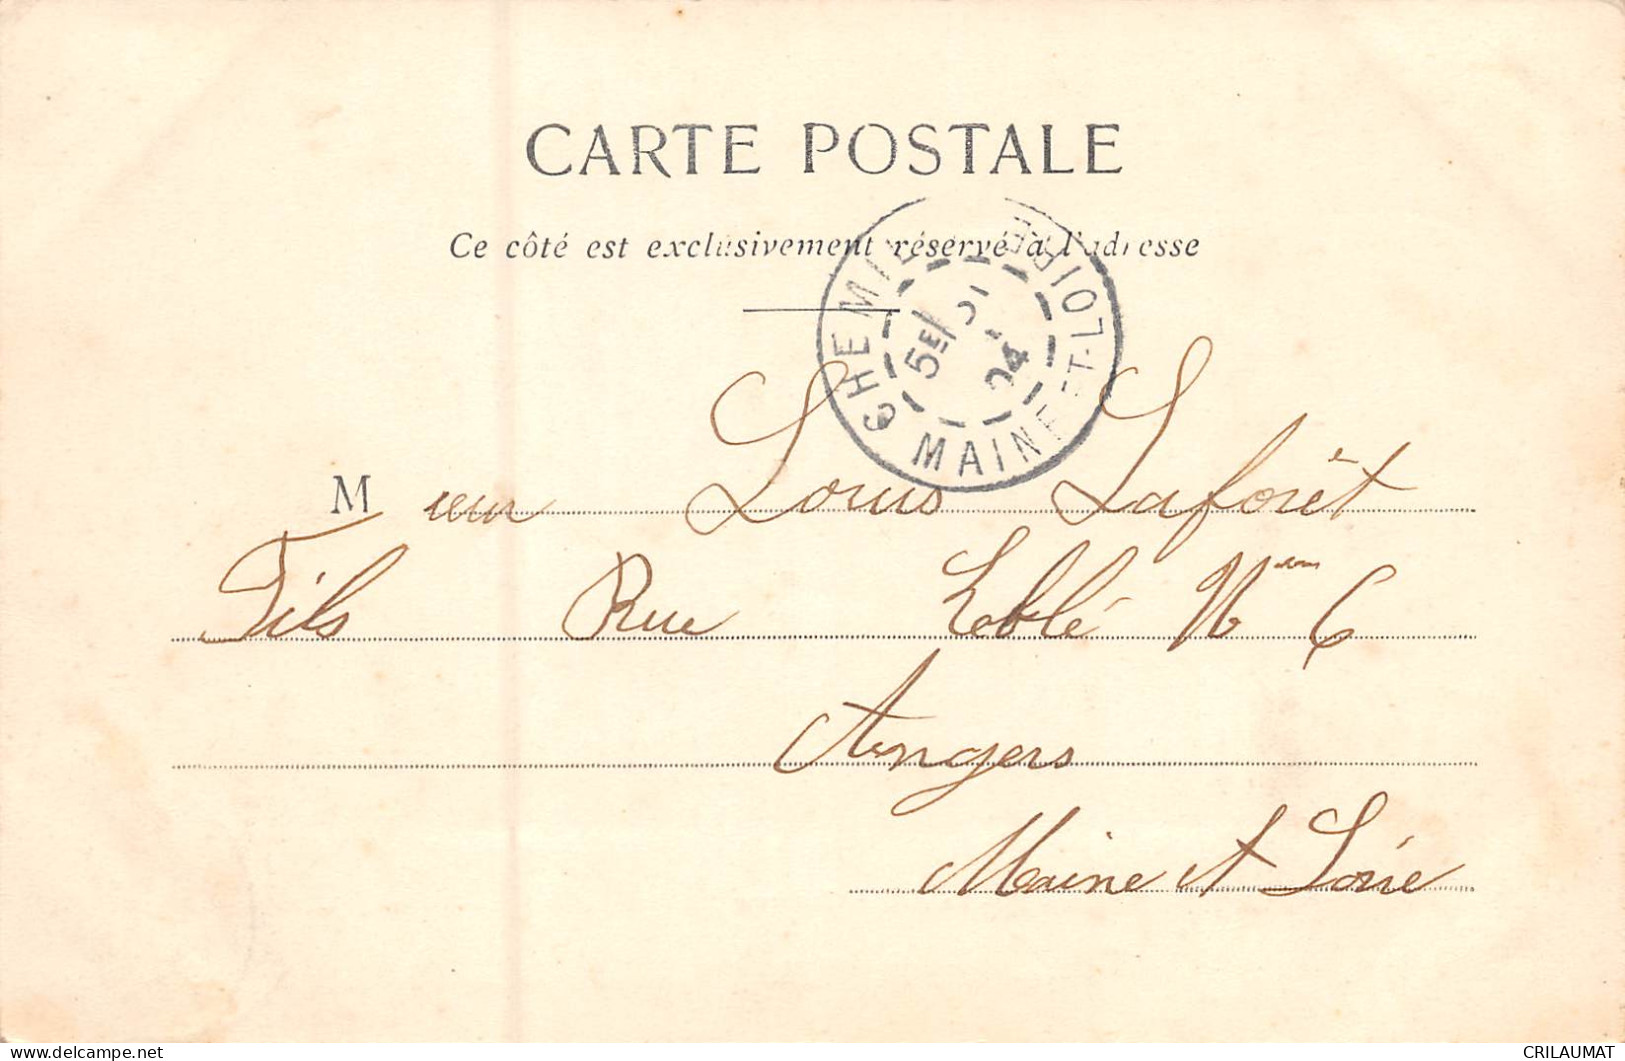 CARTE POSTALE
Ce côté est exclusivement réservé à l'adresse
CHEMIL MAINE-ET-LOIRE
5E 04
M ieur Louis Laforêt
Fils Rue Leblé N 6
Angers
Maine et Loire
delcampe.net
CRILAUMAT